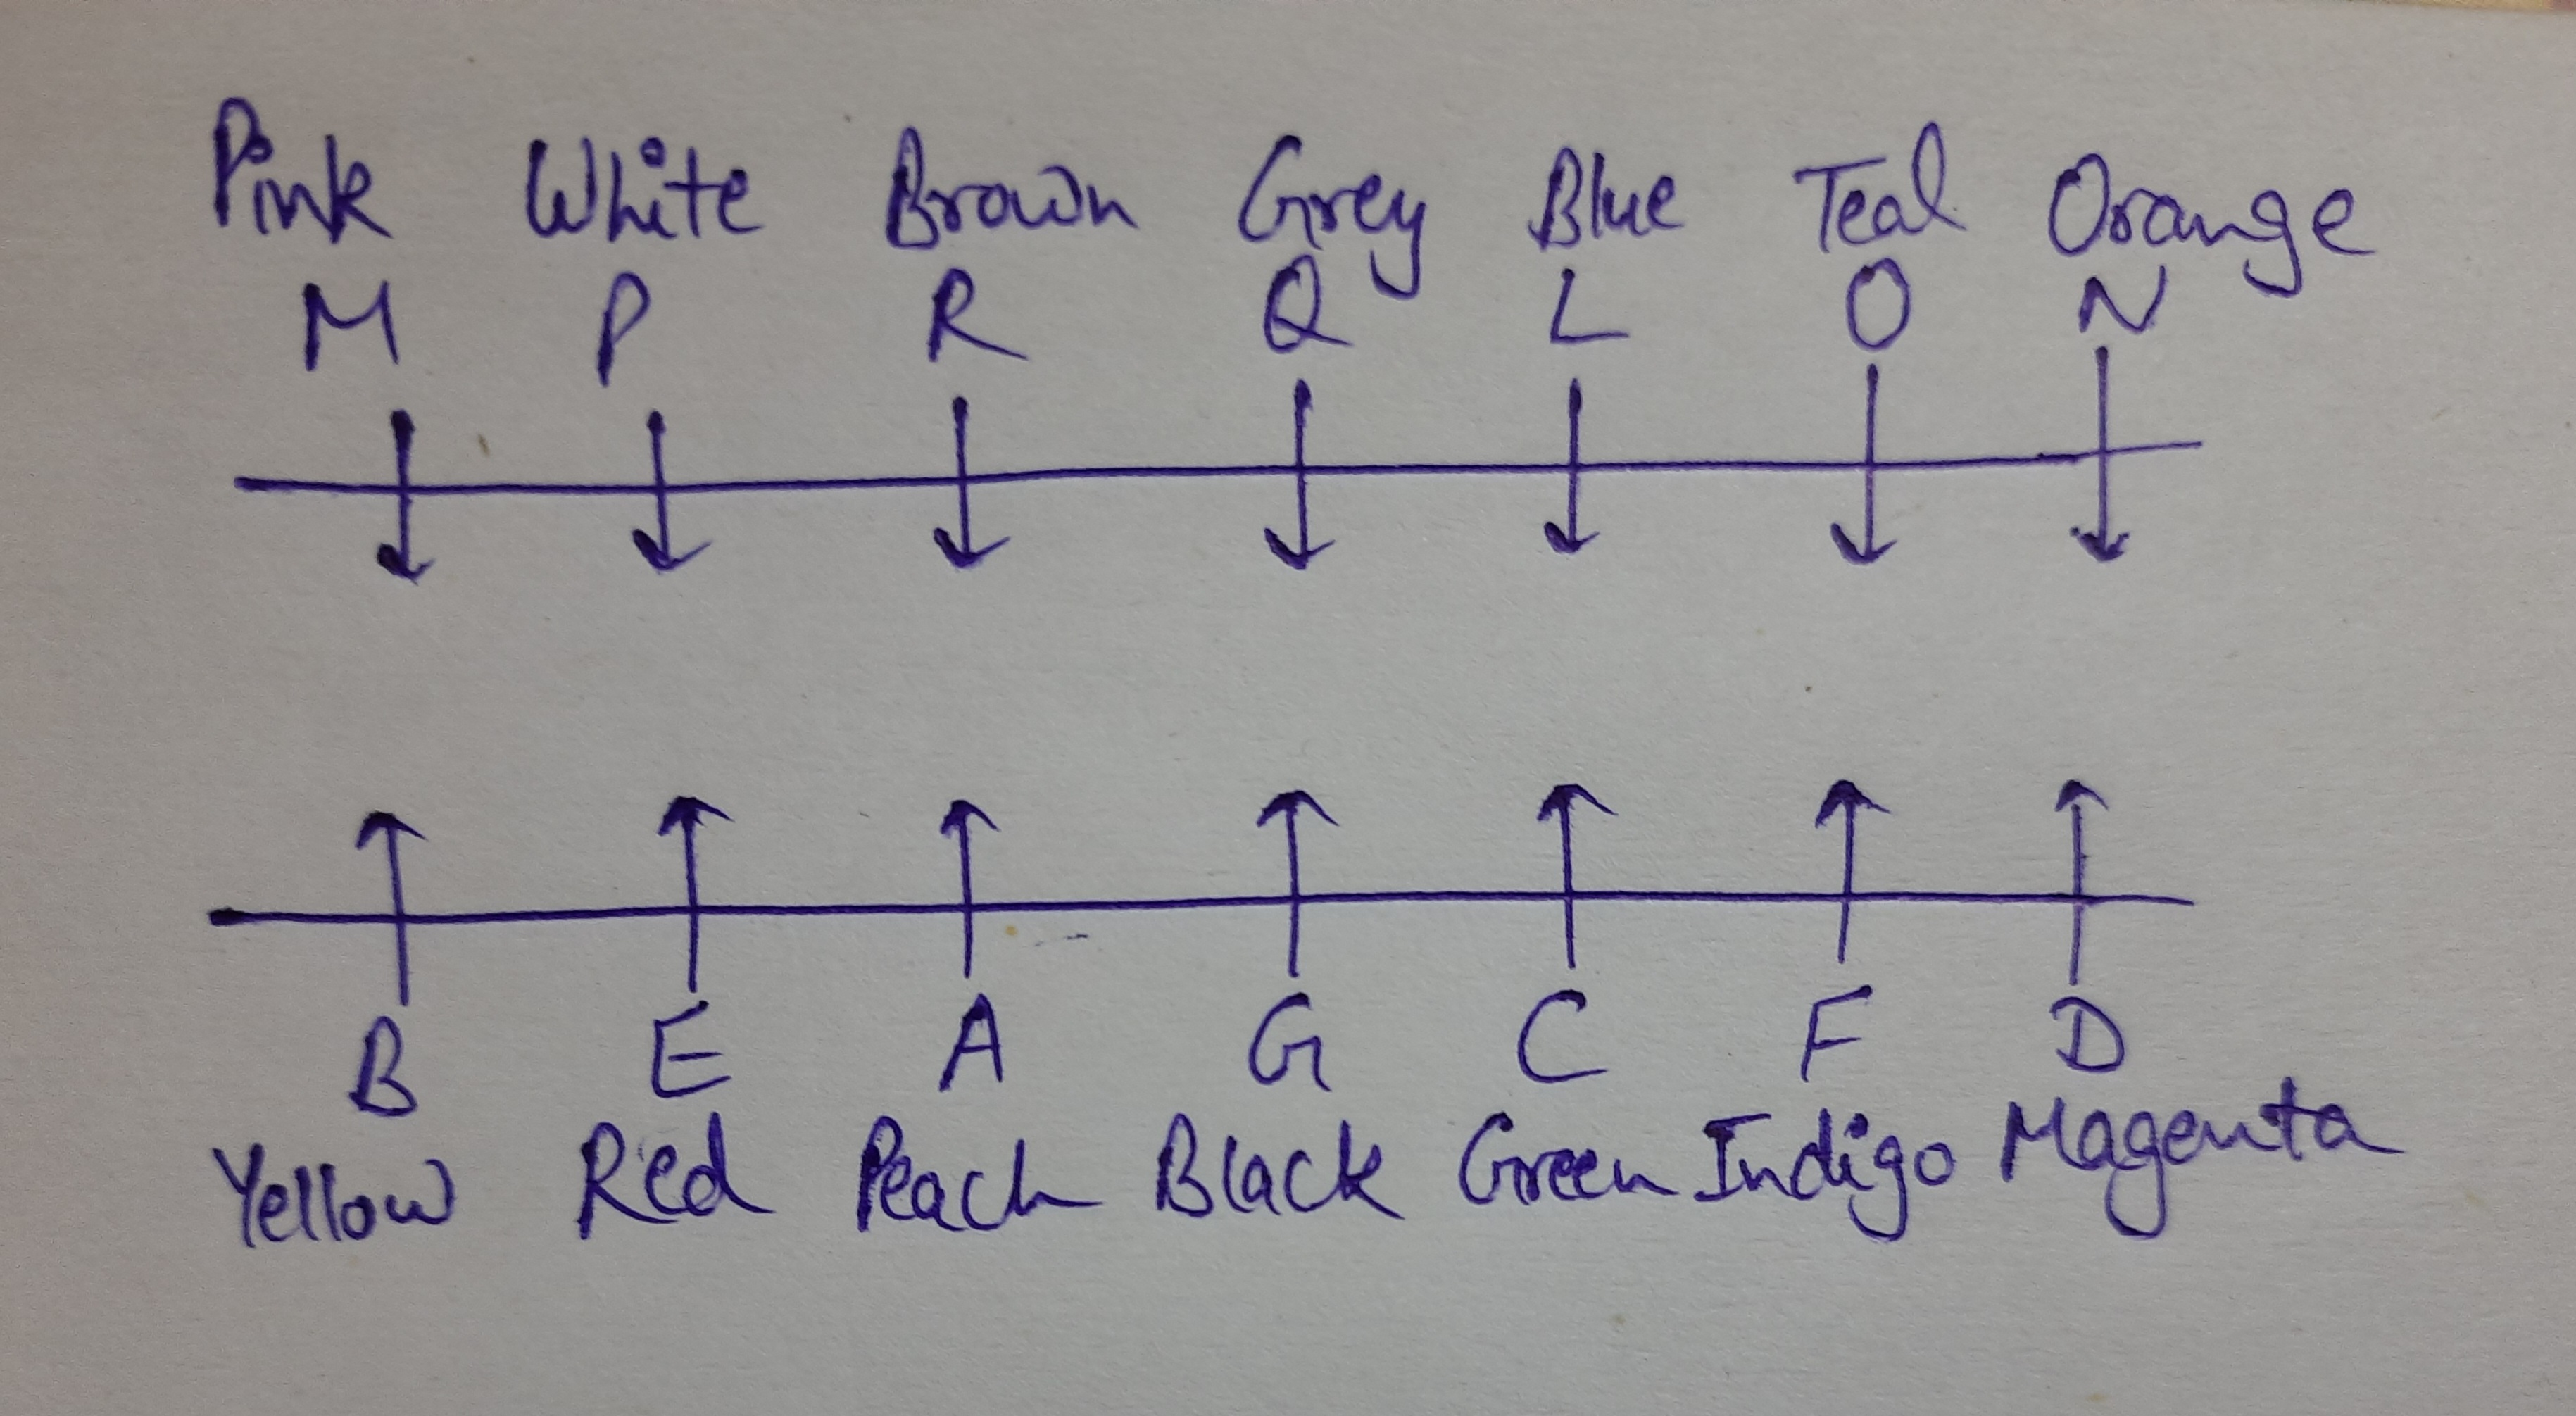 Pink White Brown Grey Blue Teal Orange
M P R Q L O N
B E A G C F D
Yellow Red Peach Black Green Indigo Magenta